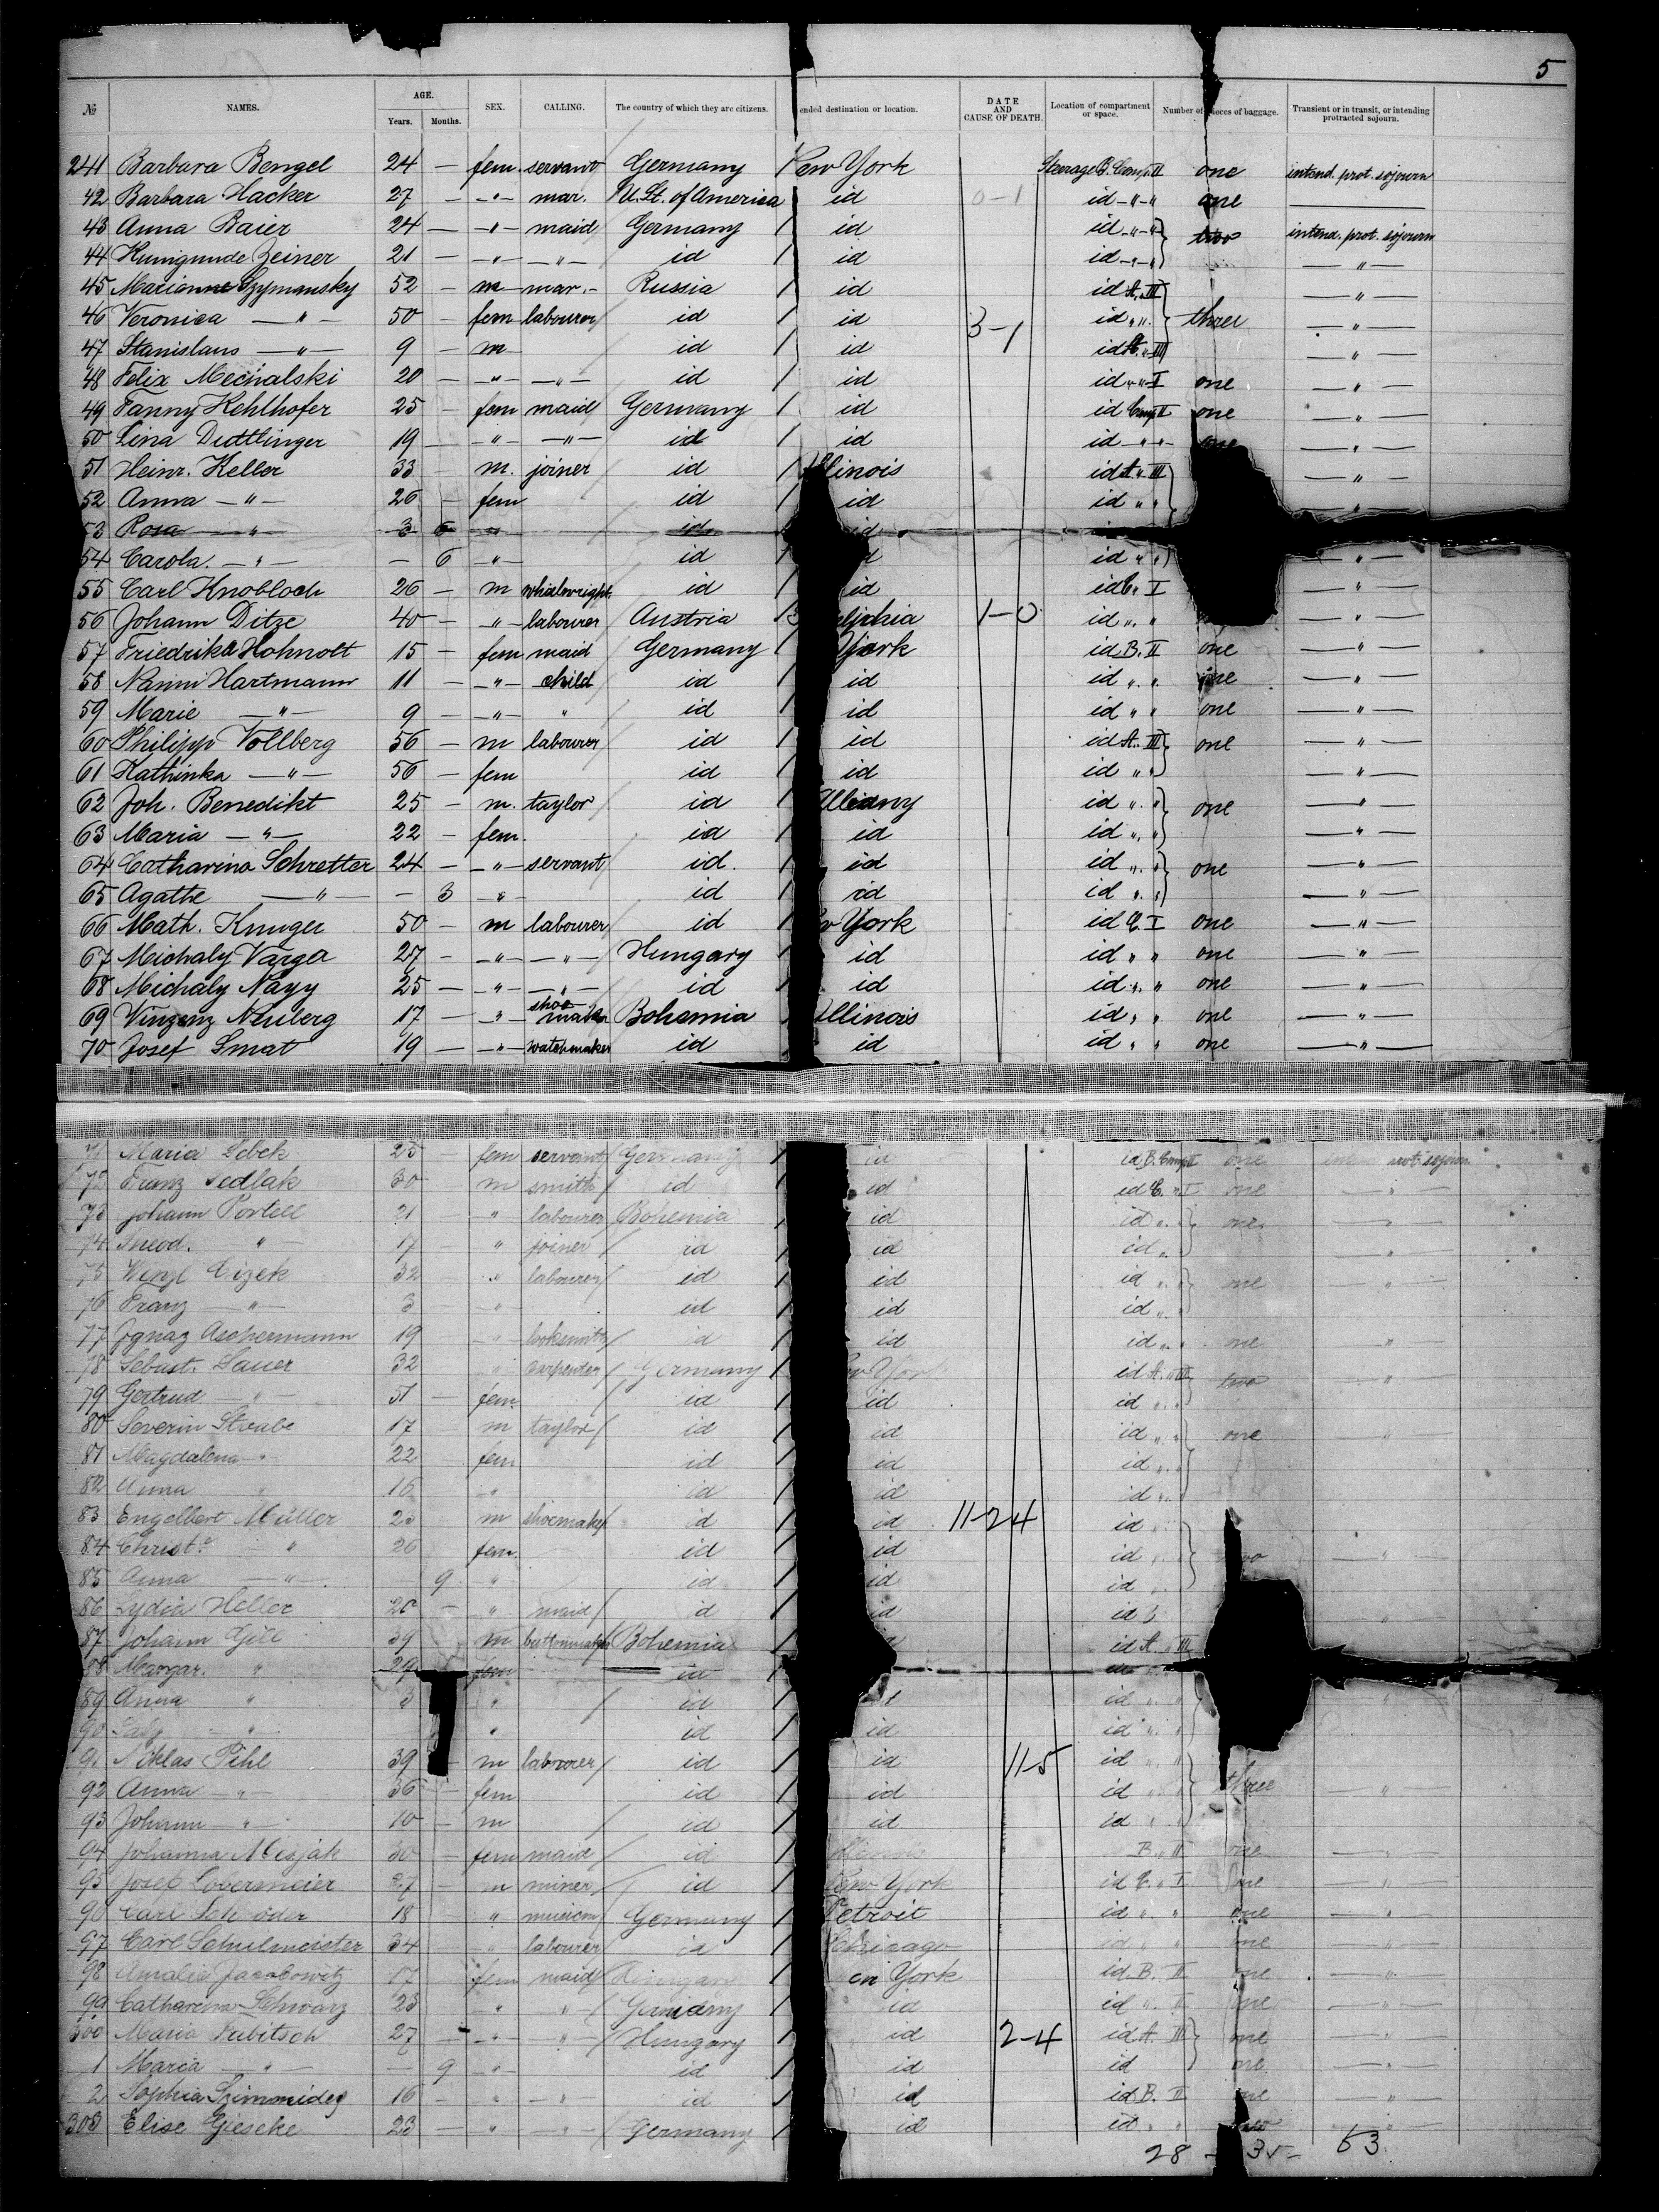 5
№ NAMES. AGE. Years. Months. SEX. CALLING. The country of which they are citizens. ended destination or location. DATE AND CAUSE OF DEATH. Location of compartment or space. Number of pieces of baggage. Transient or in transit, or intending protracted sojourn.
241 Barbara Bengel 24 — fem. servant Germany New York Steerage B. Comp. II one intend. prot. sojourn
42 Barbara Hacker 27 — -"- mar. U. St. of America id 0-1 id -"-" one —
43 Anna Baier 24 — -"- maid Germany id id -"-" two intend. prot. sojourn
44 Kunigunde Zeiner 21 — -"- -"- id id id -"-" -"-
45 Marianne Szymansky 52 — m mar. Russia id id A. III -"-
46 Veronica -"- 50 — fem labourer id id 3-1 id " " three -"-
47 Stanislaus -"- 9 — m id id id A. " III -"-
48 Felix Mechalski 20 — -"- -"- id id id " " I one -"-
49 Fanny Kehlhofer 25 — fem maid Germany id id Comp II one -"-
50 Lina Duttlinger 19 — -"- -"- id id id -"-" one -"-
51 Heinr. Keller 33 — m. joiner id llinois id A. " III -"-
52 Anna -"- 26 — fem id id id " " -"-
53 Rosa -"- 3 6 -"- id id
54 Carola. -"- — 6 -"- id d id " " -"-
55 Carl Knobloch 26 — m whielwright id id id C. I -"-
56 Johann Ditze 40 — -"- labourer Austria elphia 1-0 id " " -"-
57 Friedrika Hohnolt 15 — fem maid Germany York id B. II one -"-
58 Nanni Hartmann 11 — -"- child id id id " " one -"-
59 Marie -"- 9 — -"- " id id id " " one -"-
60 Philipp Vollberg 56 — m labourer id id id A. " III one -"-
61 Kathinka -"- 56 — fem id id id " " -"-
62 Joh. Benedikt 25 — m. taylor id Alleany id " " one -"-
63 Maria -"- 22 — fem. id id id " " -"-
64 Catharina Schretter 24 — -"- servant id. id id " " one -"-
65 Agathe -"- — 3 -"- id id id " " -"-
66 Math. Krugel 50 — m labourer id w York id C. I one -"-
67 Michaly Varga 27 — -"- -"- Hungary id id " " one -"-
68 Michaly Nayy 25 — -"- -"- id id id " " one -"-
69 Vinzenz Neuberg 17 — -"- shoemaker Bohemia Illinois id " " one -"-
70 Josef Smat 19 — -"- watchmaker id id id " " one -"-
71 Maria Sebek 25 fem servant Germany id id B. Comp II one intend prot. sojourn
72 Franz Sedlak 30 m smith id id id C. " I one -"-
73 Johann Portell 21 " labourer Bohemia id id " " one -"-
74 Theod. -"- 17 " joiner id id id " -"-
75 Wenzl Cizek 32 -"- labourer id id id " " one "
76 Franz -"- 3 -"- id id id "
77 Ignaz Aschermann 19 -"- locksmith id id id " " one "
78 Sebast. Sauer 32 " carpenter Germany New York id A. " III two "
79 Gertrud -"- 51 — fem. id id id " "
80 Severin Straabe 17 m taylor id id id " " one "
81 Magdalena -"- 22 fem id id id " "
82 Anna " 16 -"- id id id "
83 Engelbert Müller 25 m shoemaker id id 11-24 id
84 Christ.e " 26 fem id id id two -"-
85 Anna -"- 9 " id id id
86 Lydia Heller 26 — " maid id id id B "
87 Johann Gill 39 m buttonmaker Bohemia id A. " III
88 Margar. " 29 fem id
89 Anna " 3 " id id id " "
90 -"- " id id id " "
91 Niklas Pihl 39 m labourer id id 11-5 id " "
92 Anna -"- 36 — fem id id id " " three "
93 Johann -"- 10 — m id id id " "
94 Johanna Mesjak 30 fem maid id Illinois B. " II one -"-
95 Josef Lobermeier 27 m miner id New York id C. " I one -"-
96 Carl Schröder 18 " musicm Germany Detroit id " " one "
97 Carl Schulmeister 34 " labourer id Chicago id " " one "
98 Amalie Jacobowitz 17 fem maid Hungary New York id B. II one "
99 Catharina Schwarz 23 " -"- Germany id id " II one "
300 Maria Rubitsch 27 — -"- -"- Hungary id 2-4 id A. III one -"-
1 Maria -"- — 9 -"- id id id one -"-
2 Sophia Szimonides 16 — " -"- id id id B. II one "
303 Elise Gieseke 23 — " -"- Germany id id " "
28 - 35 - 63